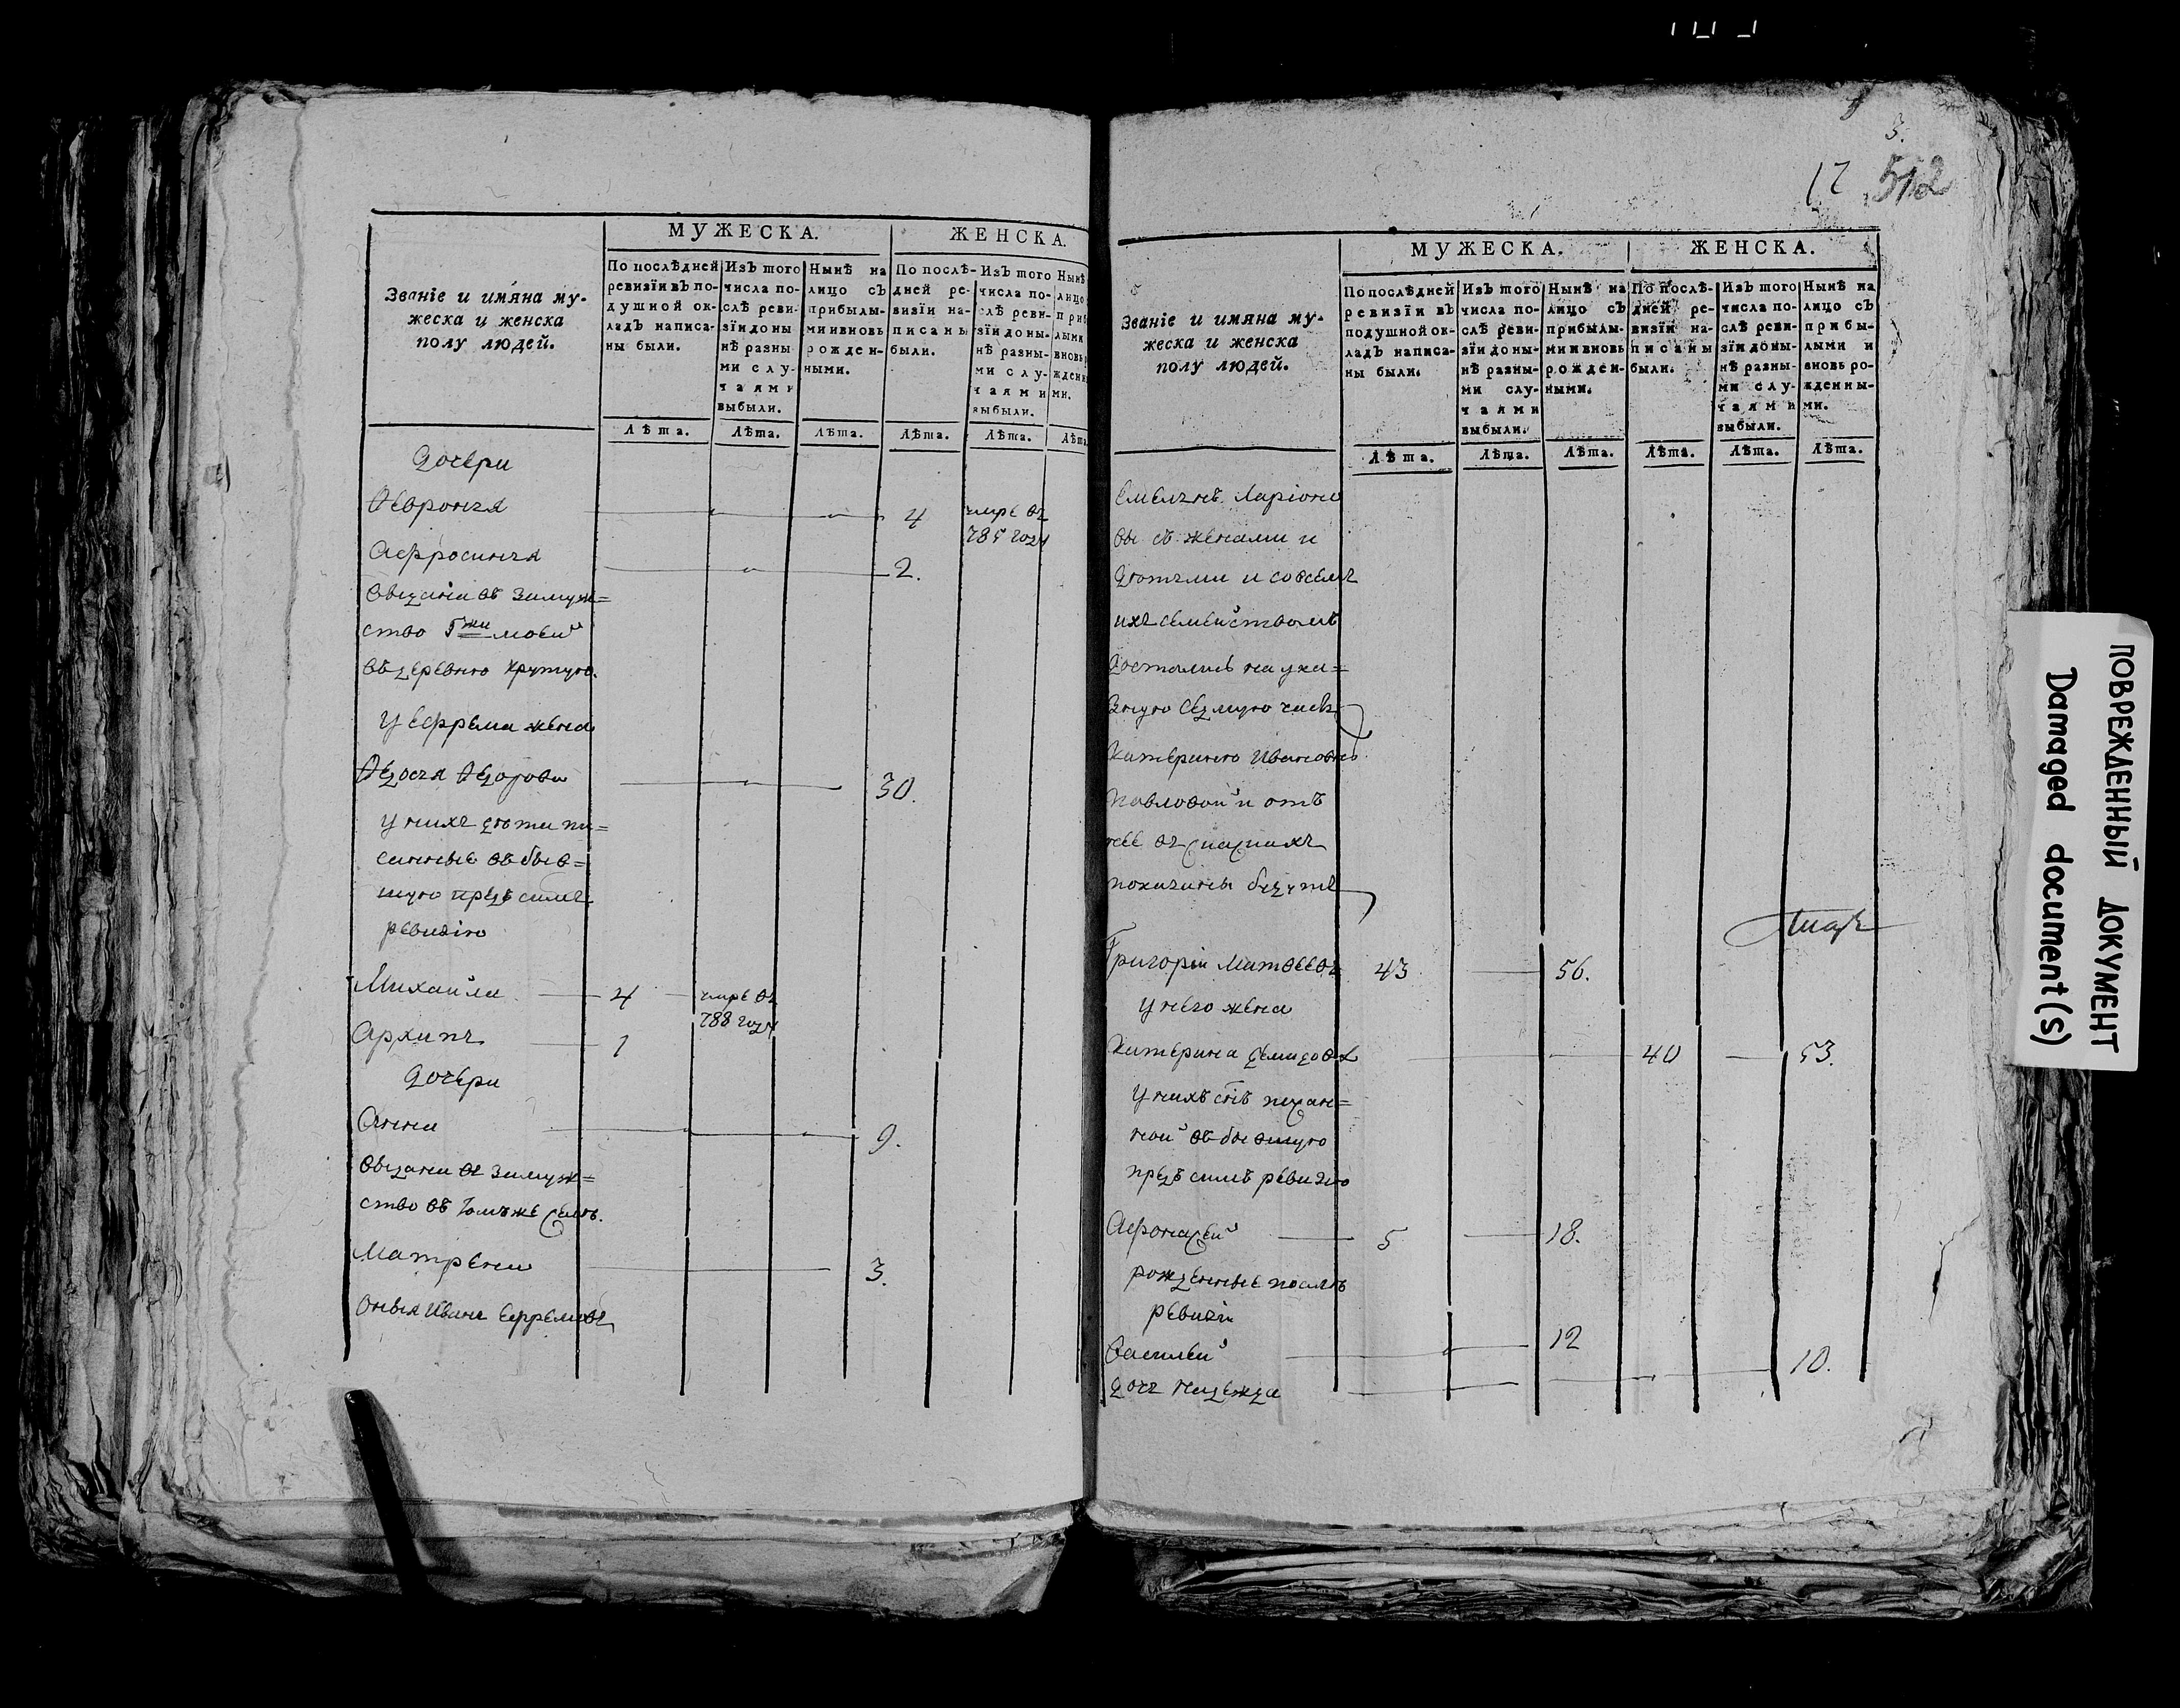 МУЖЕСКА.
ЖЕНСКА.
Званїе и имяна му-
жеска и женска
полу людей.
По послѣдней
ревизїи въ по-
душной ок-
ладъ написа-
ны были.
Изъ того
числа по-
слѣ реви-
зїи доны
нѣ разны
ми слу-
чаями
выбыли.
Нынѣ на
лицо съ
прибылы-
ми и вновь
рожден-
ными.
По послѣ-
дней ре-
визїи на-
писаны
были.
Изъ того
числа по-
слѣ реви-
зїи доны-
нѣ разны-
ми слу-
чаями
выбыли.
Нынѣ
лицо
приб
лыми
вновь р
жденн
ми.
Лѣта. Лѣта. Лѣта. Лѣта. Лѣта. Лѣта
Дочери
Ѳевронья 4 умре въ
785 году
Афросинья 2.
выдани въ замуж=
ство Гжи моей
въ деревню Крутую.
у Ефрема жена
Ѳедосья Ѳедорова 30.
у нихъ дѣти пи=
санные въ быв=
шую предъ симъ
ревизїю
Михайла 4 умре въ
788 году
Архипъ 1
Дочери
Анна 9.
выдана въ замуж=
ство въ томъ же селѣ.
Матрена 3.
Оныя Иванъ Ефремовъ
3.
17 512
МУЖЕСКА.
ЖЕНСКА.
Званїе и имяна му-
жеска и женска
полу людей.
По послѣдней
ревизїи въ
подушной ок-
ладъ написа-
ны были.
Изъ того
числа по-
слѣ реви-
зїи доны-
нѣ разны-
ми слу-
чаями
выбыли.
Нынѣ на
лицо съ
прибылы-
ми и вновь
рожден-
ными.
По послѣ-
дней ре-
визїи на-
писаны
были.
Изъ того
числа по-
слѣ реви-
зїи доны-
нѣ разны-
ми слу-
чаями
выбыли.
Нынѣ на
лицо съ
прибы-
лыми и
вновь ро-
жденны-
ми.
Лѣта. Лѣта. Лѣта. Лѣта. Лѣта. Лѣта.
Емельнъ Ларїоно
вы съ женами и
дѣтьми и совсемъ
ихъ семействомъ
достались на ука=
зную седмую часть
Катерину Ивановну
Павловой и отъ
нее въ скаскахъ
показаны будутъ
Григорїй Матвеевъ 43 56.
у него жена
Катерина Демидова 40 53.
у нихъ снъ писан=
ной въ бывшую
предъ симъ ревизию
Афонасей 5 18.
рожденные послѣ
ревизїи
Василей 12
дочь Надежда 10.
ПОВРЕЖДЕННЫЙ ДОКУМЕНТ
Damaged document(s)